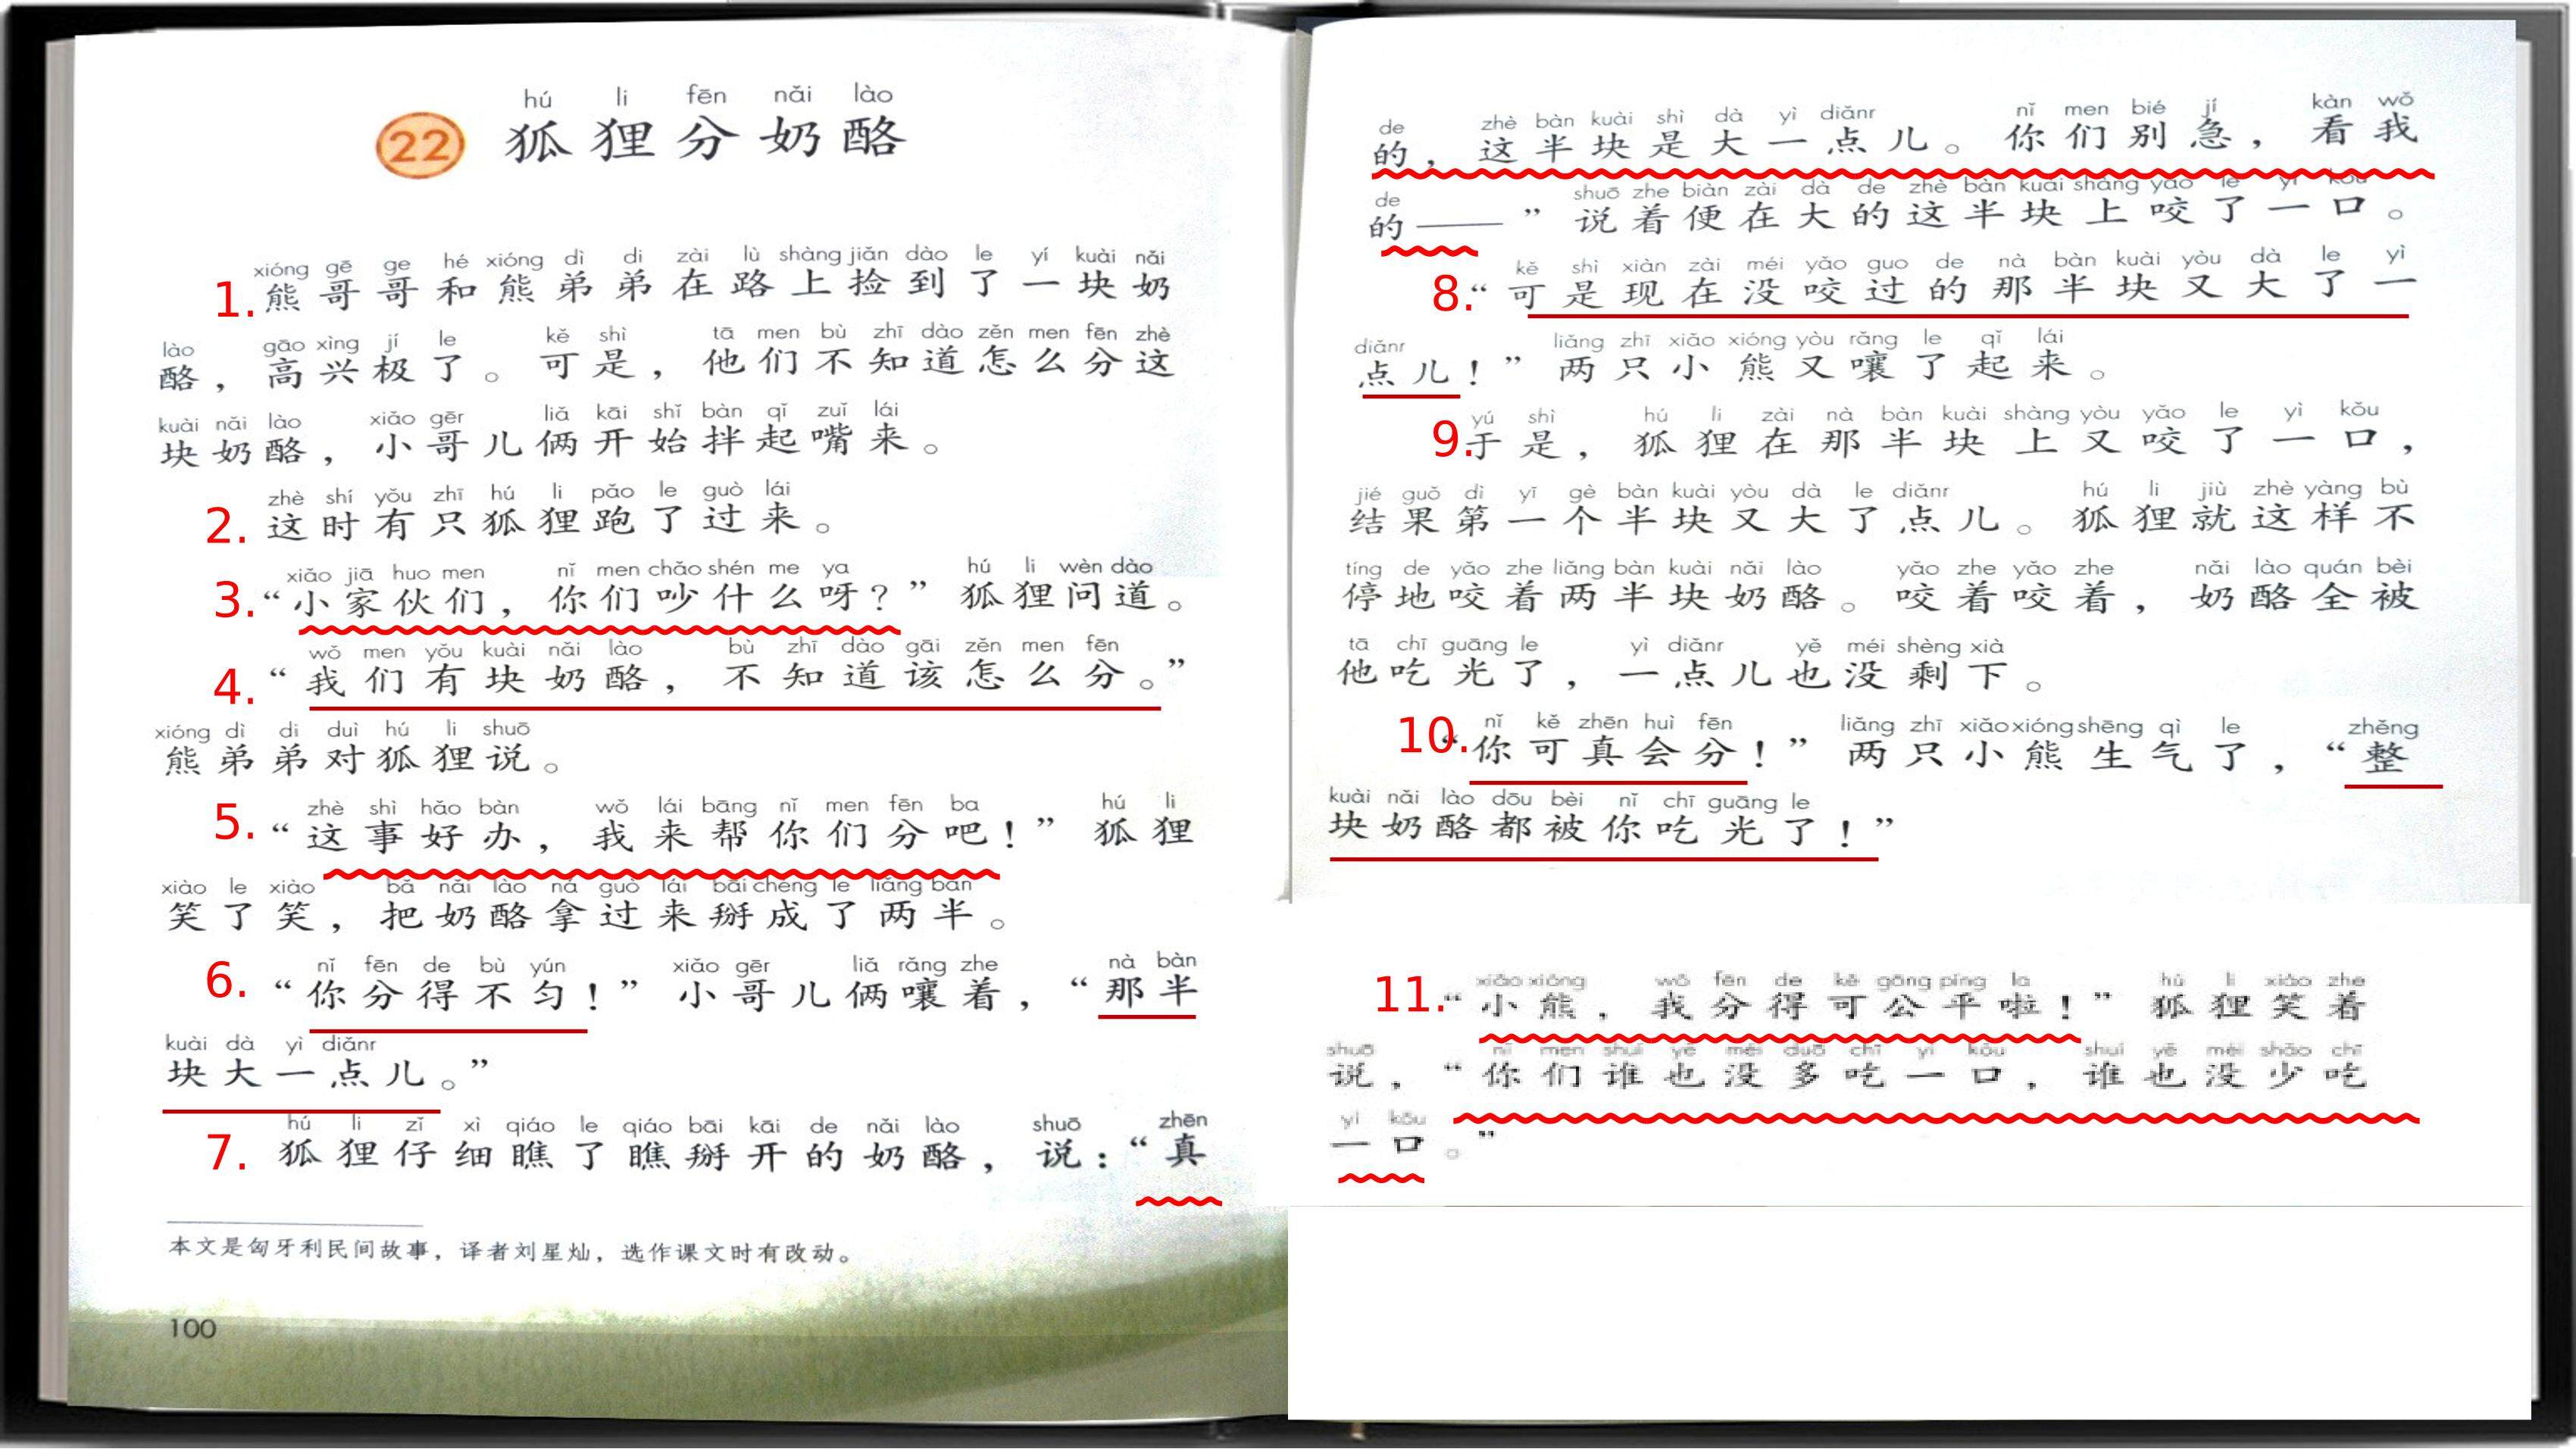 hú li fēn nǎi lào
22 狐狸分奶酪
xióng gē ge hé xióng dì di zài lù shàng jiǎn dào le yí kuài nǎi
1. 熊哥哥和熊弟弟在路上捡到了一块奶
lào gāo xìng jí le kě shì tā men bù zhī dào zěn men fēn zhè
酪，高兴极了。可是，他们不知道怎么分这
kuài nǎi lào xiǎo gēr liǎ kāi shǐ bàn qǐ zuǐ lái
块奶酪，小哥儿俩开始拌起嘴来。
zhè shí yǒu zhī hú li pǎo le guò lái
2. 这时有只狐狸跑了过来。
xiǎo jiā huo men nǐ men chǎo shén me ya hú li wèn dào
3. “小家伙们，你们吵什么呀？”狐狸问道。
wǒ men yǒu kuài nǎi lào bù zhī dào gāi zěn men fēn
4. “我们有块奶酪，不知道该怎么分。”
xióng dì di duì hú li shuō
熊弟弟对狐狸说。
zhè shì hǎo bàn wǒ lái bāng nǐ men fēn ba hú li
5. “这事好办，我来帮你们分吧！”狐狸
xiào le xiào bǎ nǎi lào ná guò lái bāi chéng le liǎng bàn
笑了笑，把奶酪拿过来掰成了两半。
nǐ fēn de bù yún xiǎo gēr liǎ rǎng zhe nà bàn
6. “你分得不匀！”小哥儿俩嚷着，“那半
kuài dà yì diǎnr
块大一点儿。”
hú li zǐ xì qiáo le qiáo bāi kāi de nǎi lào shuō zhēn
7. 狐狸仔细瞧了瞧掰开的奶酪，说：“真
本文是匈牙利民间故事，译者刘星灿，选作课文时有改动。
100
de zhè bàn kuài shì dà yì diǎnr nǐ men bié jí kàn wǒ
的，这半块是大一点儿。你们别急，看我
de shuō zhe biàn zài dà de zhè bàn kuài shàng yǎo le yì kǒu
的——”说着便在大的这半块上咬了一口。
kě shì xiàn zài méi yǎo guo de nà bàn kuài yòu dà le yì
8. “可是现在没咬过的那半块又大了一
diǎnr liǎng zhī xiǎo xióng yòu rǎng le qǐ lái
点儿！”两只小熊又嚷了起来。
yú shì hú li zài nà bàn kuài shàng yòu yǎo le yì kǒu
9. 于是，狐狸在那半块上又咬了一口，
jié guǒ dì yī gè bàn kuài yòu dà le diǎnr hú li jiù zhè yàng bù
结果第一个半块又大了点儿。狐狸就这样不
tíng de yǎo zhe liǎng bàn kuài nǎi lào yǎo zhe yǎo zhe nǎi lào quán bèi
停地咬着两半块奶酪。咬着咬着，奶酪全被
tā chī guāng le yì diǎnr yě méi shèng xià
他吃光了，一点儿也没剩下。
nǐ kě zhēn huì fēn liǎng zhī xiǎo xióng shēng qì le zhěng
10. “你可真会分！”两只小熊生气了，“整
kuài nǎi lào dōu bèi nǐ chī guāng le
块奶酪都被你吃光了！”
xiǎo xióng wǒ fēn de kě gōng píng la hú li xiào zhe
11. “小熊，我分得可公平啦！”狐狸笑着
shuō nǐ men shuí yě méi duō chī yì kǒu shuí yě méi shǎo chī
说，“你们谁也没多吃一口，谁也没少吃
yì kǒu
一口。”